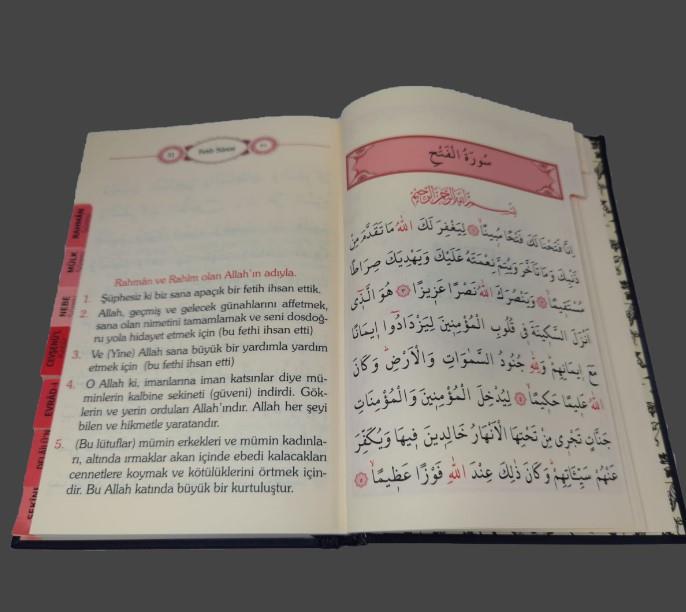 Fetih Sûresi
Rahmân ve Rahîm olan Allah'ın adıyla.
1. Şüphesiz ki biz sana apaçık bir fetih ihsan ettik.
2. Allah, geçmiş ve gelecek günahlarını affetmek,
sana olan nimetini tamamlamak ve seni dosdoğ-
ru yola hidayet etmek için (bu fethi ihsan etti)
3. Ve (Yine) Allah sana büyük bir yardımla yardım
etmek için (bu fethi ihsan etti)
4. O Allah ki, imanlarına iman katsınlar diye mü-
minlerin kalbine sekineti (güveni) indirdi. Gök-
lerin ve yerin orduları Allah'ındır. Allah her şeyi
bilen ve hikmetle yaratandır.
5. (Bu lütuflar) mümin erkekleri ve mümin kadınla-
rı, altında ırmaklar akan içinde ebedi kalacakları
cennetlere koymak ve kötülüklerini örtmek için-
dir. Bu Allah katında büyük bir kurtuluştur.
RAHMÂN
MÜLK
NEBE
CEVŞENÜ'L
EVRÂD-I
DELÂİLÜ'N
SEKÎNE
سُورَةُ الْفَتْحِ
بِسْمِ اللهِ الرَّحْمٰنِ الرَّحِيمِ
اِنَّا فَتَحْنَا لَكَ فَتْحًا مُبِينًا ﴿١﴾ لِيَغْفِرَ لَكَ اللهُ مَا تَقَدَّمَ مِنْ
ذَنْبِكَ وَمَا تَاَخَّرَ وَيُتِمَّ نِعْمَتَهُ عَلَيْكَ وَيَهْدِيَكَ صِرَاطًا
مُسْتَقِيمًا ﴿٢﴾ وَيَنْصُرَكَ اللهُ نَصْرًا عَزِيزًا ﴿٣﴾ هُوَ الَّذٖى
اَنْزَلَ السَّكِينَةَ فٖى قُلُوبِ الْمُؤْمِنِينَ لِيَزْدَادُوا اِيمَانًا
مَعَ اِيمَانِهِمْ وَلِلّٰهِ جُنُودُ السَّمٰوَاتِ وَالْاَرْضِ وَكَانَ
اللهُ عَلِيمًا حَكِيمًا ﴿٤﴾ لِيُدْخِلَ الْمُؤْمِنِينَ وَالْمُؤْمِنَاتِ
جَنَّاتٍ تَجْرٖى مِنْ تَحْتِهَا الْاَنْهَارُ خَالِدِينَ فِيهَا وَيُكَفِّرَ
عَنْهُمْ سَيِّئَاتِهِمْ وَكَانَ ذٰلِكَ عِنْدَ اللهِ فَوْزًا عَظِيمًا ﴿٥﴾